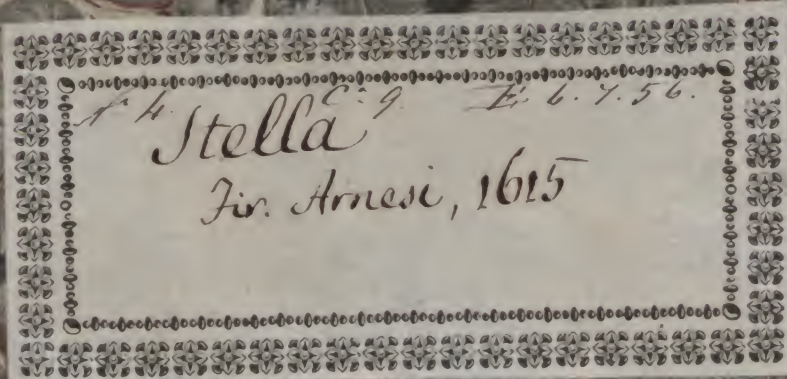 C. 9. E. 6. 7. 56.
Stella
Fir. Arnesi, 1615